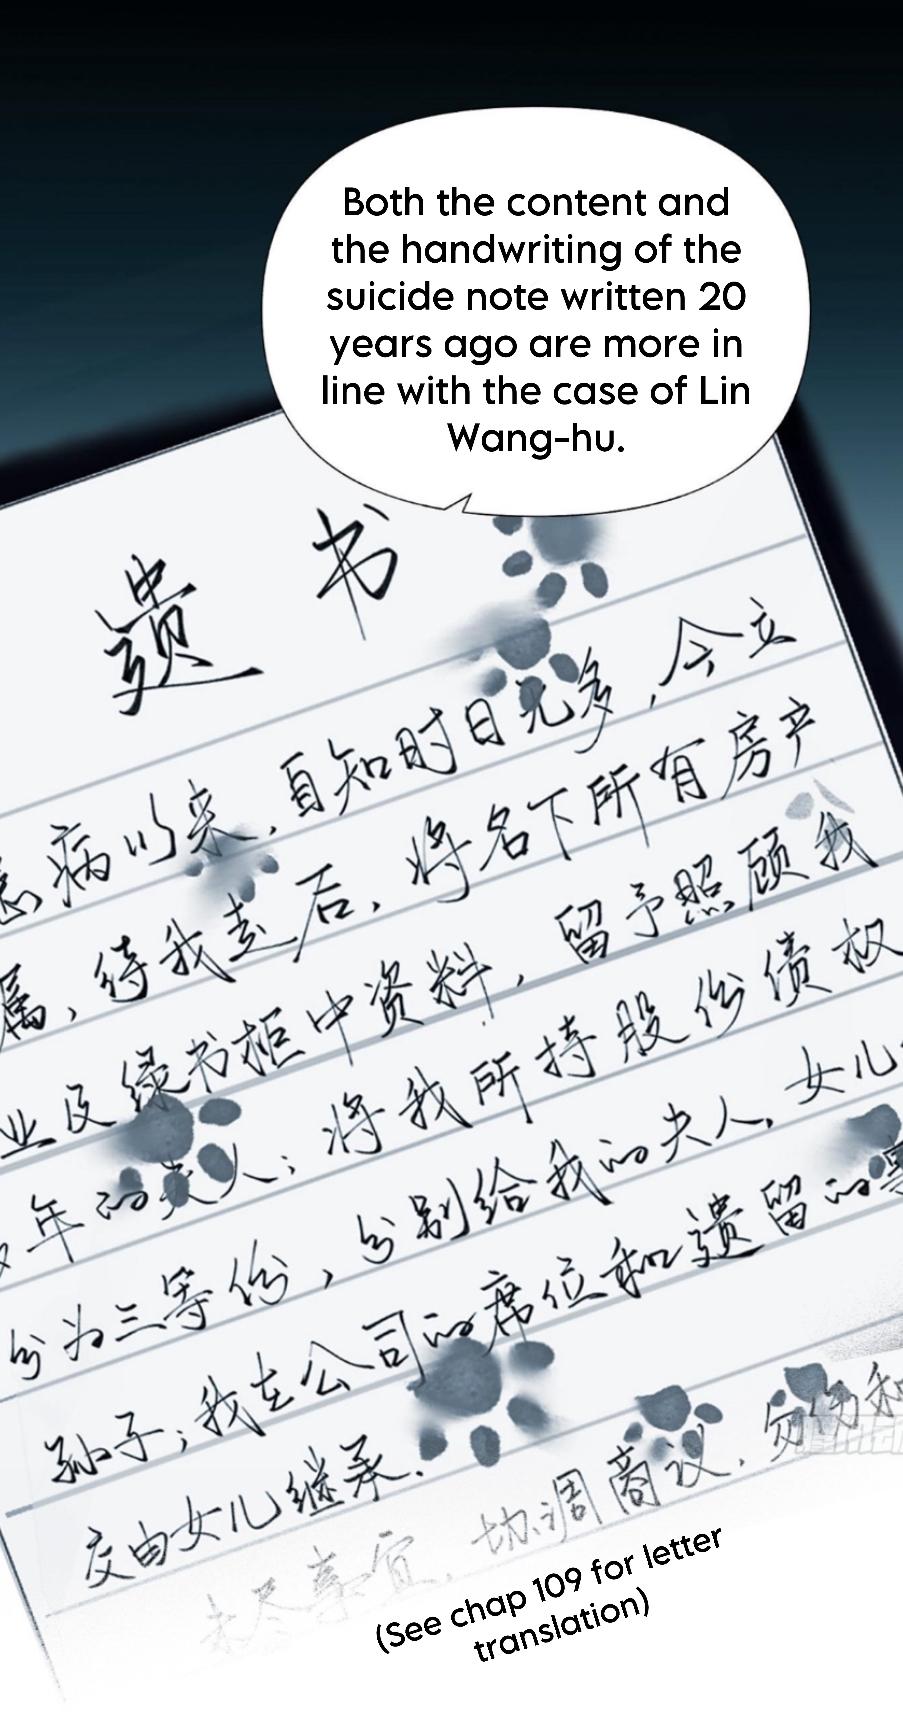 Both the content and
the handwriting of the
suicide note written 20
years ago are more in
line with the case of Lin
Wang-hu.
遗书
病以来,自知时日无多,今立
属,待我走后,将名下所有房产
业及绿书柜中资料,留予照顾我
年的夫人;将我所持股份债权
分为三等份,分别给我的夫人,女儿
孙子;我在公司的席位和遗留的
交由女儿继承.
未尽事宜,协调商议.勿伤和
(See chap 109 for letter
translation)